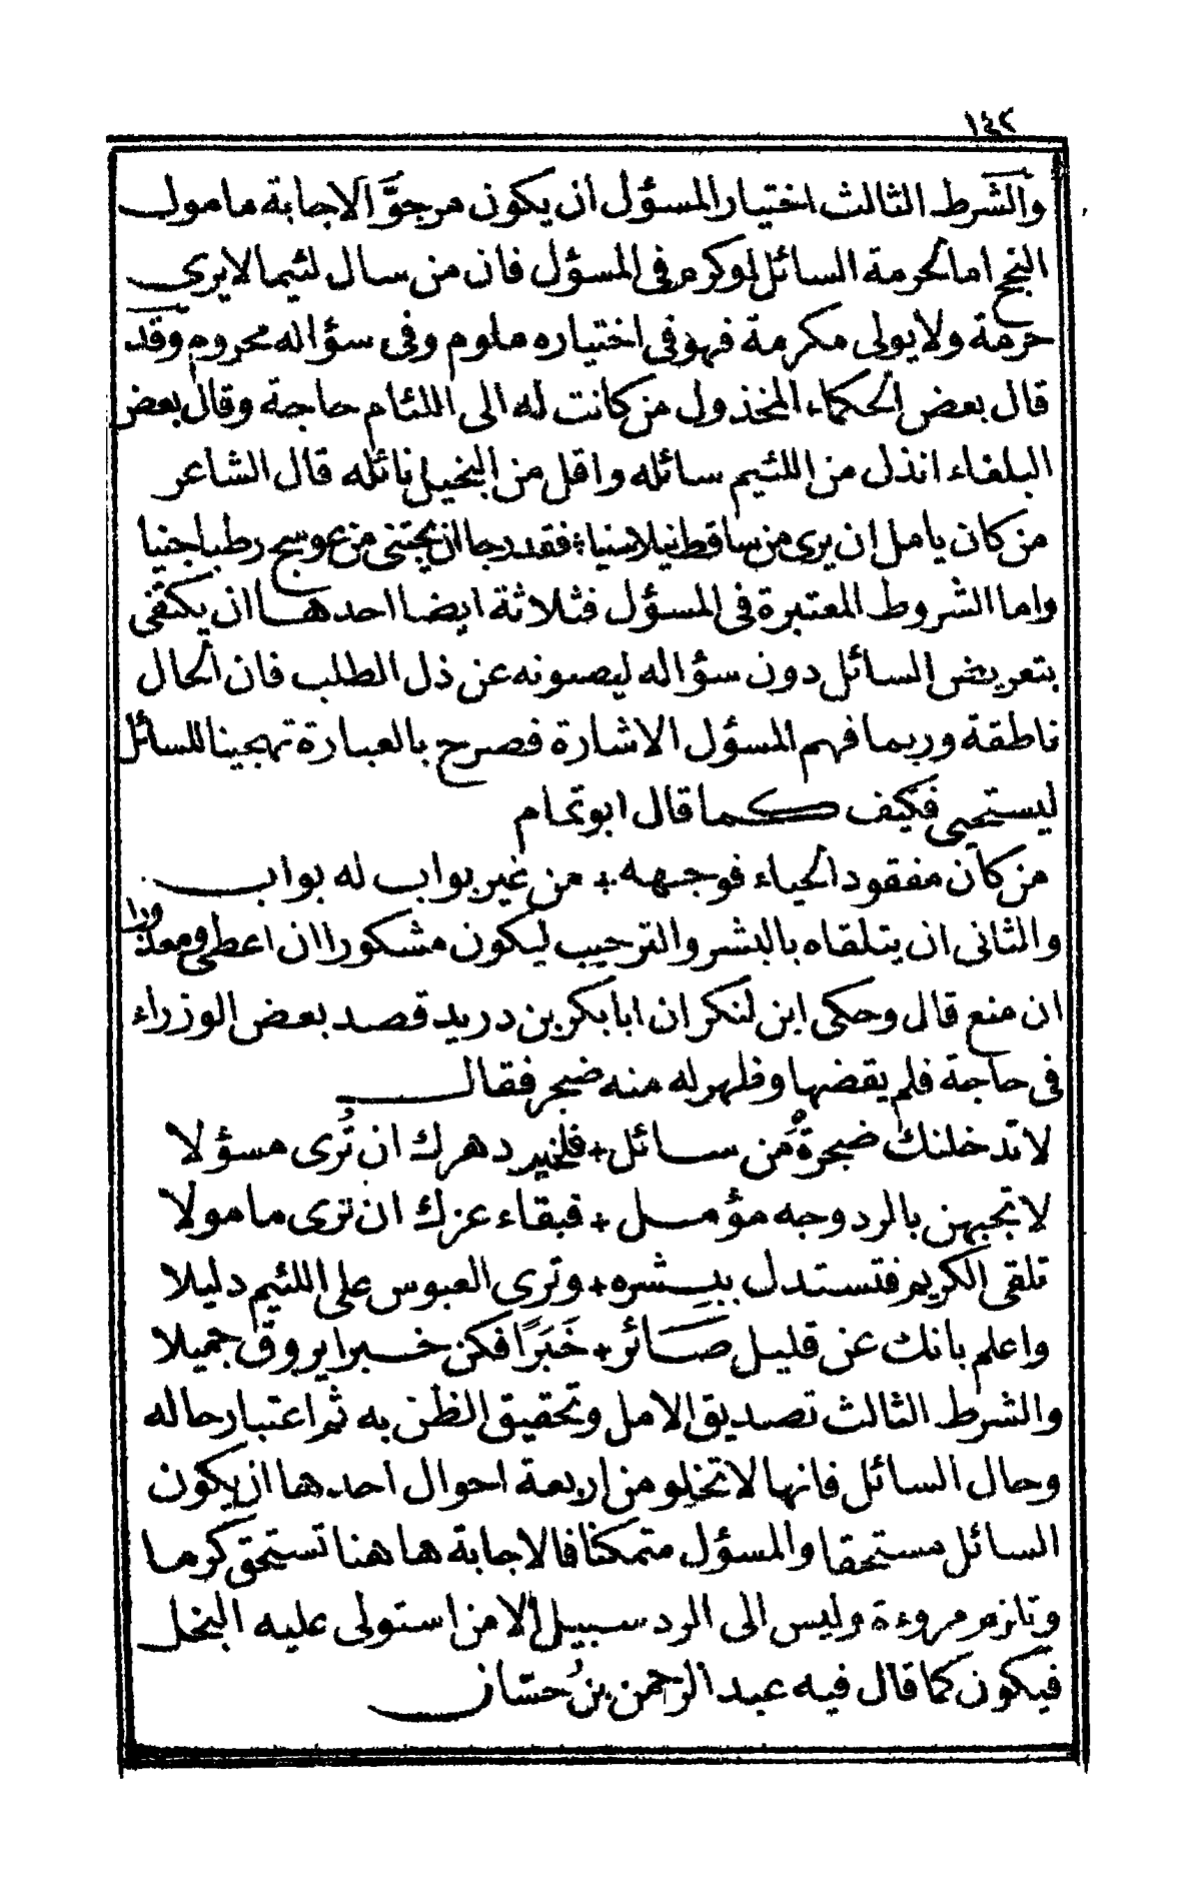 ١٤٢
والشرط الثالث اختيار المسؤل أن يكون مرجوَّ الاجابة مامول
النجح اما لحرمة السائل او كرم فى المسؤل فان من سال لئيما لا يرى
حرمة ولا يولى مكرمة فهو فى اختياره ملوم وفى سؤاله محروم وقد
قال بعض الحكماء المخذول من كانت له الى اللئام حاجة وقال بعض
البلغاء انذل من اللئيم سائله واقل من البخيل نائله قال الشاعر
من كان يامل ان يرى من ساقط نيلا سنيا ÷ فقد رجا ان يجتنى من عوسج رطبا جنيا
واما الشروط المعتبرة فى المسؤل فثلاثة ايضا احدها ان يكتفى
بتعريض السائل دون سؤاله ليصونه عن ذل الطلب فان الحال
ناطقة وربما فهم المسؤل الاشارة فصرح بالعبارة تهجينا للسائل
ليستحيى فكيف كما قال ابو تمام
من كان مفقود الحياء فوجهه + من غير بواب له بواب
والثانى ان يتلقاه بالبشر والترحيب ليكون مشكورا ان اعطى ومعذورا
ان منع قال وحكى ابن لنكر ان ابا بكر بن دريد قصد بعض الوزراء
فى حاجة فلم يقضها وظهر له منه ضجر فقال
لا تدخلنك ضجرةٌ مَن سائل + فلخير دهرك ان تُرى مسؤلا
لا تجبهن بالرد وجه مؤمل + فبقاء عزك ان ترى مامولا
تلقى الكريم فتستدل ببشره + وترى العبوس على اللئيم دليلا
واعلم بانك عن قليل صَائر + خَبَرًا فكن خبرا يروق جميلا
والشرط الثالث تصديق الامل وتحقيق الظن به ثم اعتبار حاله
وحال السائل فانها لا تخلو من اربعة احوال احدها ان يكون
السائل مستحقا والمسؤل متمكنا فالاجابة هاهنا تستحق كرما
وتلزم مروءة وليس الى الرد سبيل إلا من استولى عليه البخل
فيكون كما قال فيه عبد الرحمن بن حسّان